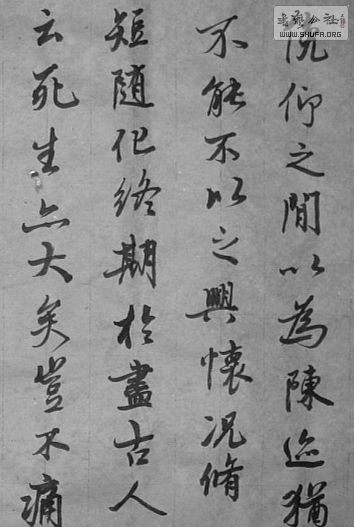 書藝公社
WWW.SHUFA.ORG
俛仰之間以為陳迹猶
不能不以之興懷況脩
短隨化終期於盡古人
云死生亦大矣豈不痛